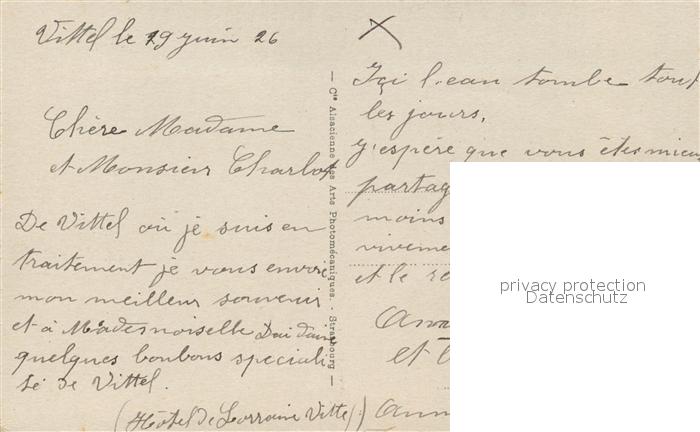 Vittel le 29 juin 26
Chère Madame
et Monsieur Charlot
De Vittel où je suis en
traitement je vous envoie
mon meilleur souvenir
et à Mademoiselle
quelques bonbons speciali
té de Vittel.
(Hôtel de Lorraine Vittel)
— Cie Alsacienne des Arts Photomécaniques. - Strasbourg —
Içi l'eau tombe tous
les jours,
J'espère que vous êtes mieux
partag
moins
viveme
et le
et
privacy protection
Datenschutz